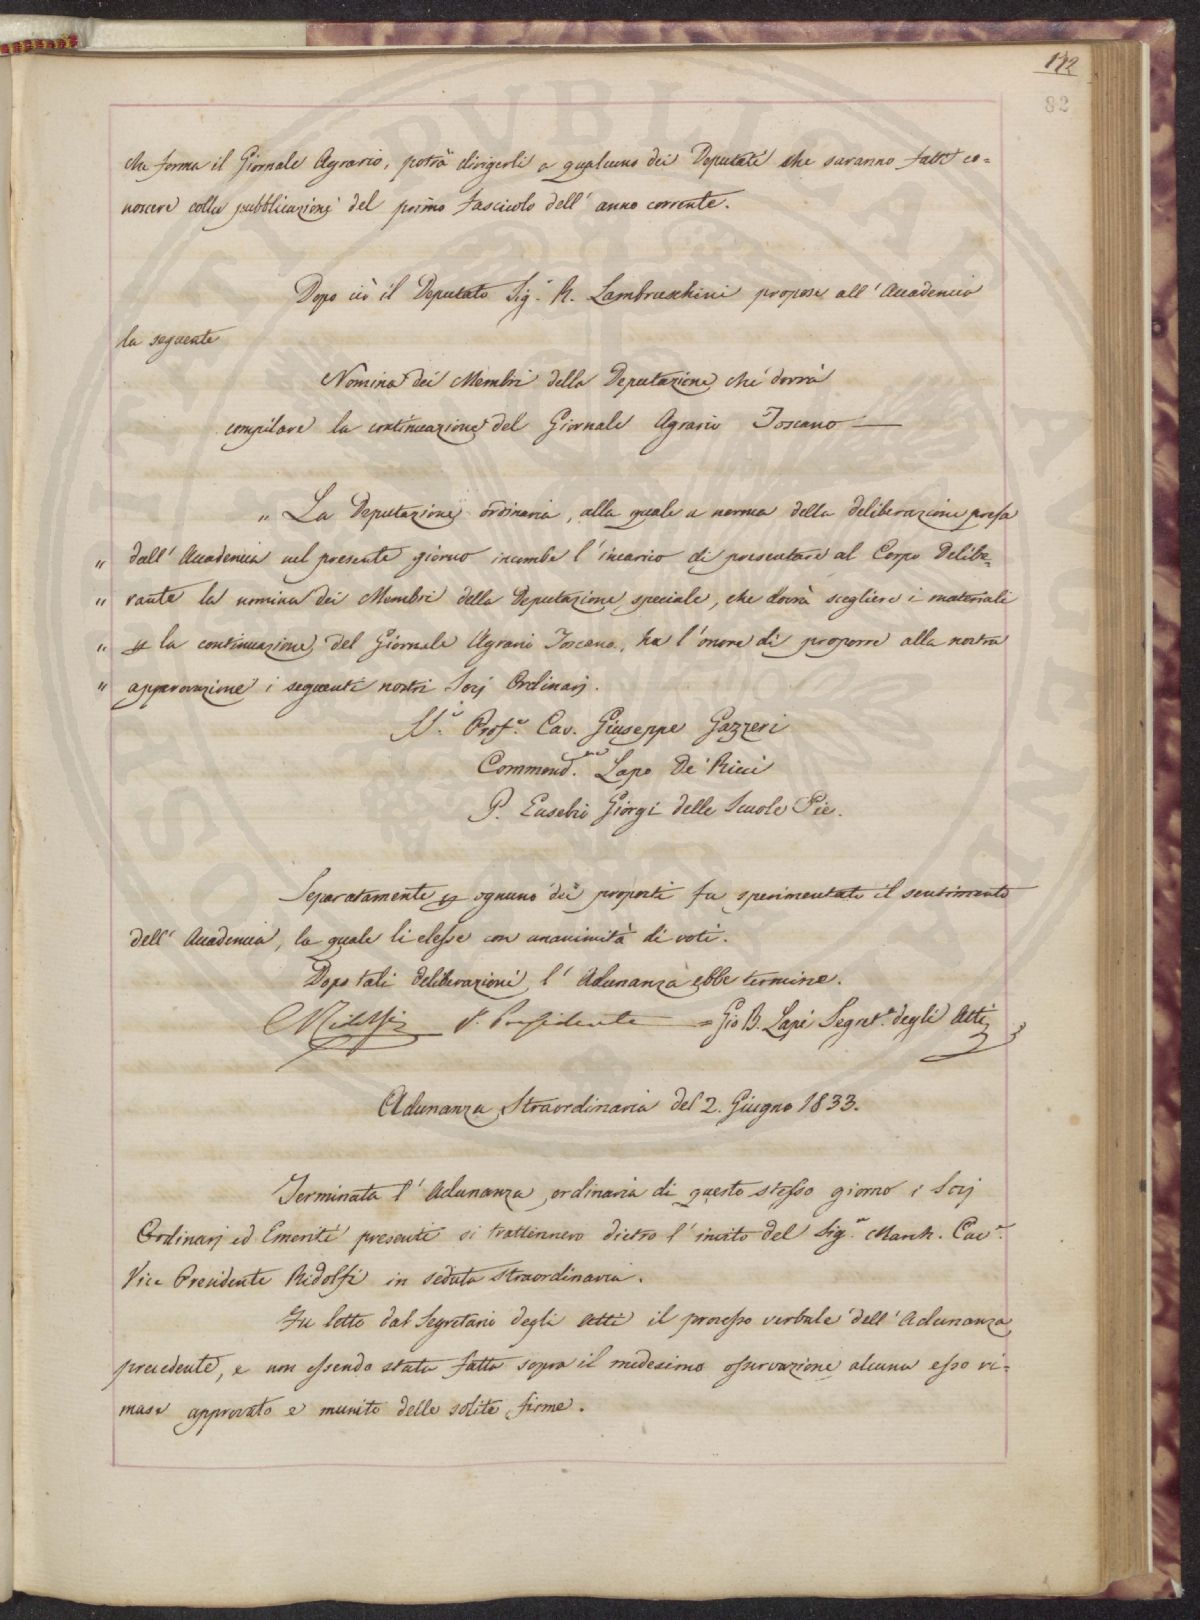 172
82
che forma il Giornale Agrario, potrà dirigerli a qualcuno dei Deputati che saranno fatti co=
noscere colla pubblicazione del primo fascicolo dell' anno corrente.
Dopo ciò il Deputato Sig.r R. Lambruschini propose all' Accademia
la seguente
Nomina dei Membri della Deputazione che dovrà
compilare la continuazione del Giornale Agrario Toscano —
„ La Deputazione ordinaria, alla quale a norma della deliberazione presa
„ dall' Accademia nel presente giorno incombe l' incarico di presentare al Corpo Delibe=
„ rante la nomina dei Membri della Deputazione speciale, che dovrà scegliere i materiali
„ p la continuazione del Giornale Agrario Toscano, ha l' onore di proporre alla nostra
„ approvazione i seguenti nostri Socj Ordinarj.
SS.ri Prof.re Cav. Giuseppe Gazzeri
Commend.re Lapo De' Ricci
P. Eusebio Giorgi delle Scuole Pie.
Separatamente p ognuno dei proposti fu sperimentato il sentimento
dell' Accademia, la quale li elesse con unanimità di voti.
Dopo tali deliberazioni l' Adunanza ebbe termine.
CRidolfi V. Presidente = Gio B. Lapi Segret.o degli Atti
Adunanza Straordinaria del 2. Giugno 1833.
Terminata l' Adunanza ordinaria di questo stesso giorno i Socj
Ordinarj ed Emeriti presenti si trattennero dietro l' invito del Sig.r March. Cav.r
Vice Presidente Ridolfi in seduta straordinaria.
Fu letto dal Segretario degli Atti il processo verbale dell' Adunanza
precedente, e non essendo stata fatta sopra il medesimo osservazione alcuna esso ri=
mase approvato e munito delle solite firme.